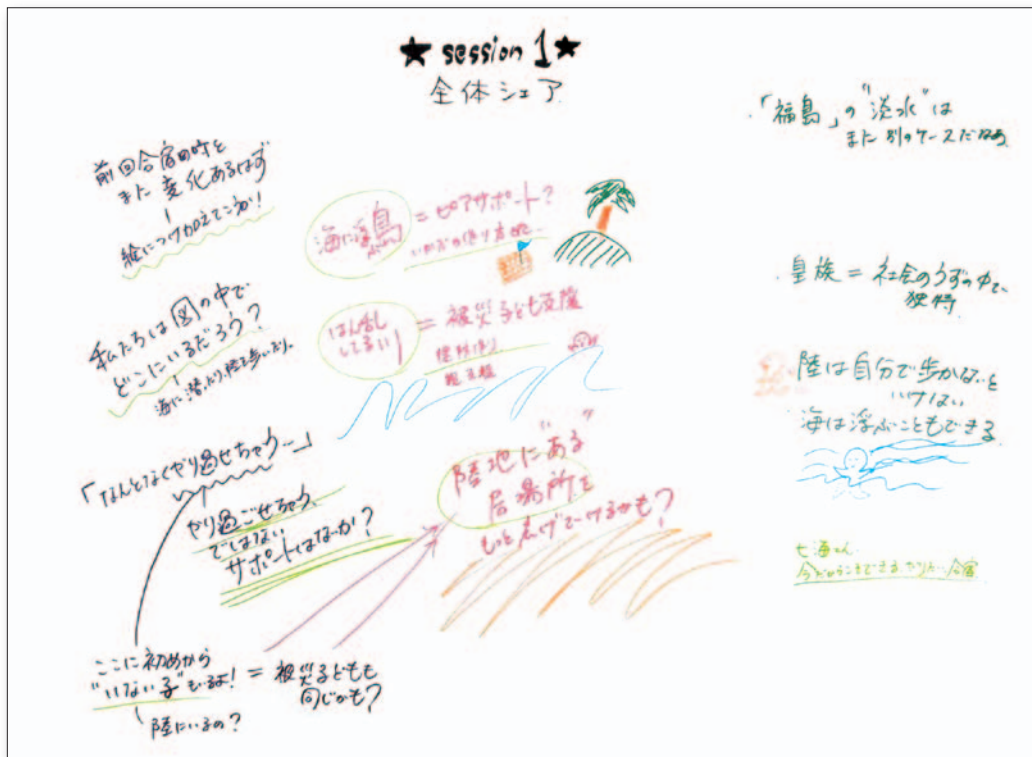 ★ session 1 ★
全体シェア
前回合宿の時と
また 変化あるはず
絵につけ加えてこうか!
私たちは図の中で
どこにいるだろう?
海に潜ったり、陸を歩いたり。
「なんとなくやり過せちゃう…」
やり過ごせちゃう、
ではない
サポートはなにか?
ここに初めから
"いない子"もいるよ!
陸にいるの?
= 被災子どもも
同じかも?
海に浮ぶ島
= ピアサポート?
いかだの作り方
はん患し
= 被災子ども支援
陸地に"ある"
居場所を
もっと広げていけるかも?
・「福島」の"淡水"は
また別のケースだなあ
・皇族 = 社会のうずの中で、
独特
陸は自分で歩かないと
いけない
海は浮ぶこともできる
七海さん
今だからこそできる、やりたい合宿